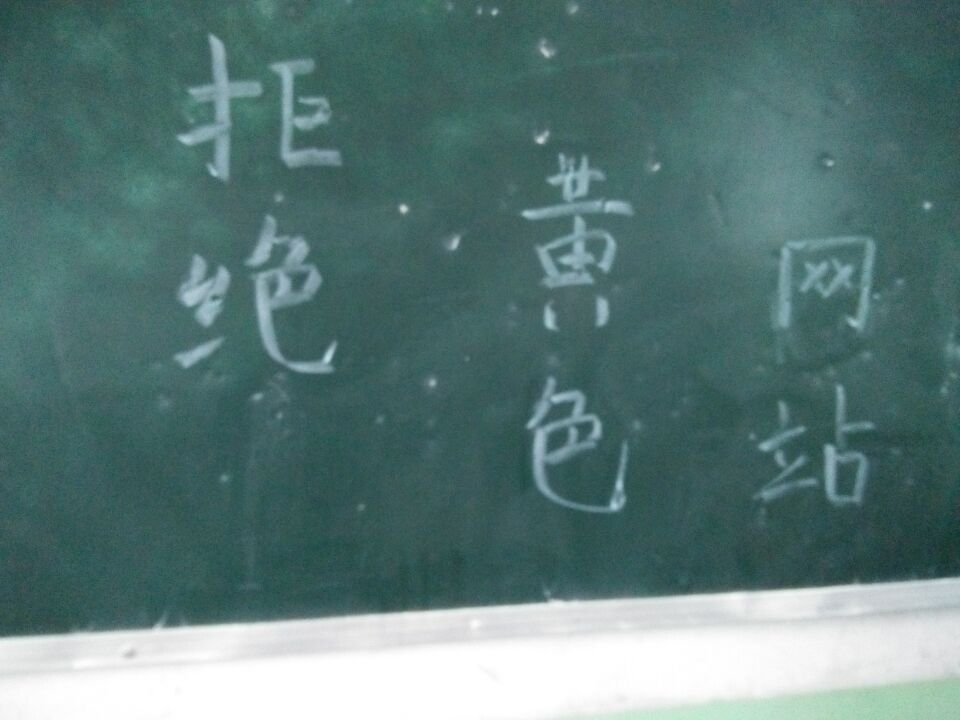 拒绝
黄色
网站